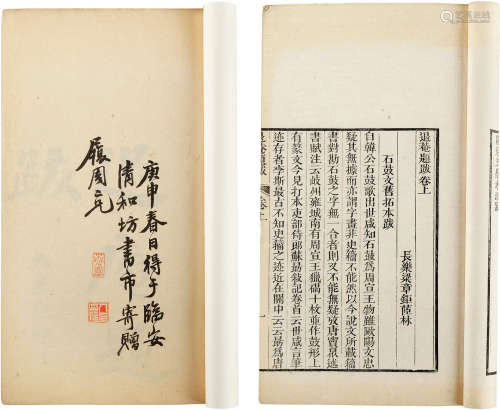 庚申春日得于臨安
清和坊書市寄贈
履周兄
退菴題跋卷上
長樂梁章鉅茝林
石鼓文舊拓本跋
自韓公石鼓歌出世咸知石鼓爲周宣王物雖歐陽文忠
疑其無據而亦謂字畫非史籀不能然以今說文所載籀
書對勘石鼓之字無一合者則又不能無疑攷唐竇臮述
書賦注云岐州雍城南有周宣王獵碣十枚並作鼓形上
有篆文今見打本吏部侍郎蘇勗敘記卷首云世咸言筆
迹存者李斯最古不知史籀之迹近在關中云云勗爲唐